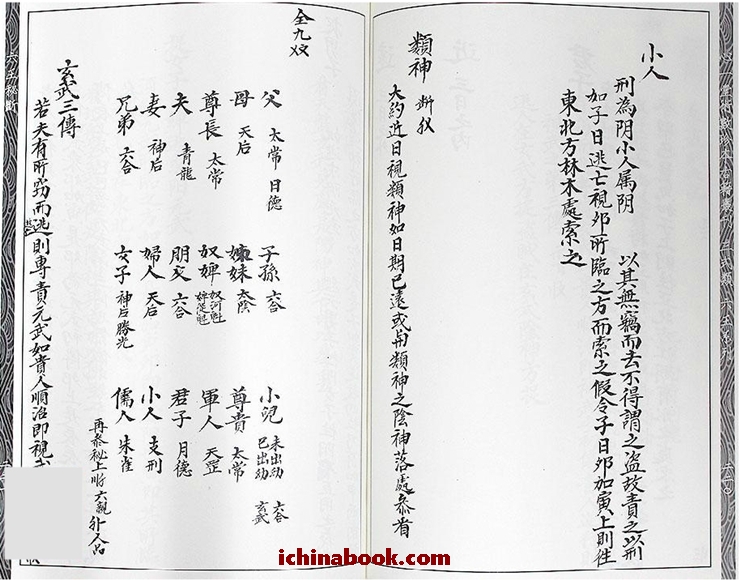 小人
刑為阴小人属阴 以其無竊而去不得謂之盗故責之以刑
如子日逃亡視夘所臨之方而索之假令子日夘加寅上則徃
東北方林木處索之
類神 断
大約近日視類神如日期已遠或用類神之陰神落處叅省
全九
父 太常 日德 子孫 六合 小兒 未出幼 六合 已出幼 玄武
母 天后 姊妹 太陰 尊貴 太常
尊長 太常 奴婢 奴河魁 婢從魁 軍人 天罡
夫 青龍 朋友 六合 君子 月德
妻 神后 婦人 天后 小人 支刑
兄弟 六合 女子 神后勝光 儒人 朱雀
再叅秘上附六親外人占
玄武三傳
若夫有所窃而逃則專責元武如貴人順治即視
ichinabook.com